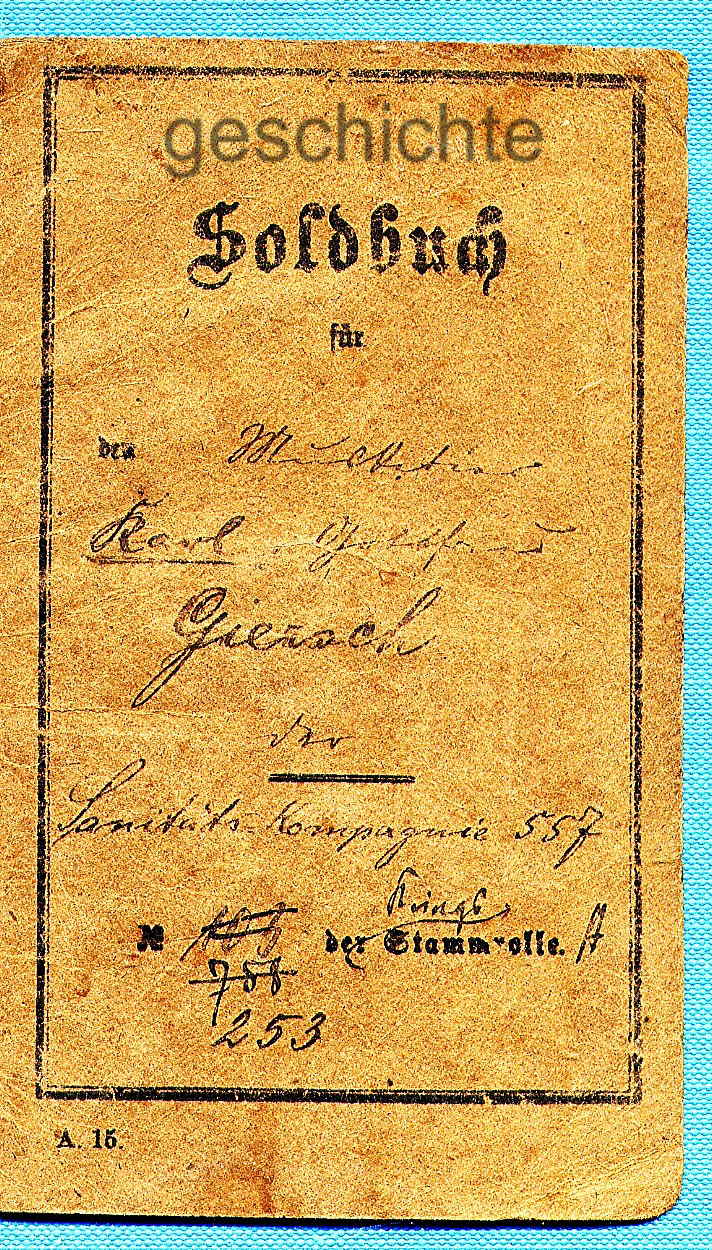 geschichte
Soldbuch
für
den Musketier
Karl
Giersch
der
Sanitäts-Kompagnie 557
Kriegs
№ der Stammrolle.
788
253
A. 15.